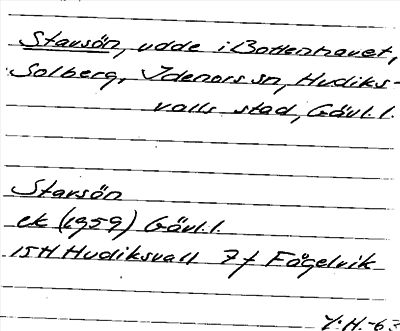 Starsön, udde i Bottenhavet,
Solberg, Idenors sn, Hudiks-
valls stad, Gävl.l.
Starsön
ek (1959) Gävl.l.
15H Hudiksvall 7f Fågelvik
Y.H.-63